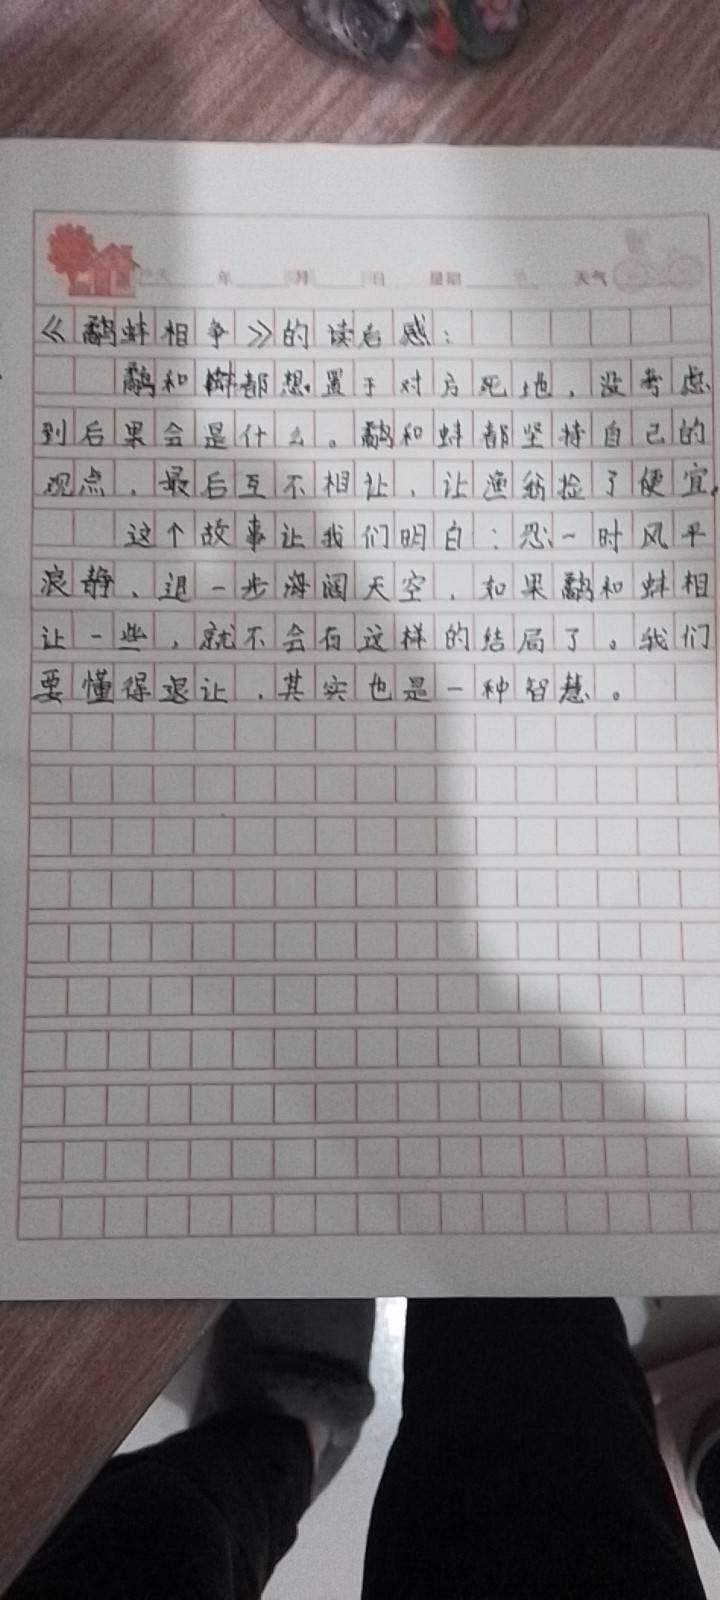 年 月 日 星期 天气
《鹬蚌相争》的读后感：
鹬和蚌都想置于对方死地，没考虑
到后果会是什么。鹬和蚌都坚持自己的
观点，最后互不相让，让渔翁捡了便宜。
这个故事让我们明白：忍一时风平
浪静、退一步海阔天空，如果鹬和蚌相
让一些，就不会有这样的结局了。我们
要懂得退让，其实也是一种智慧。